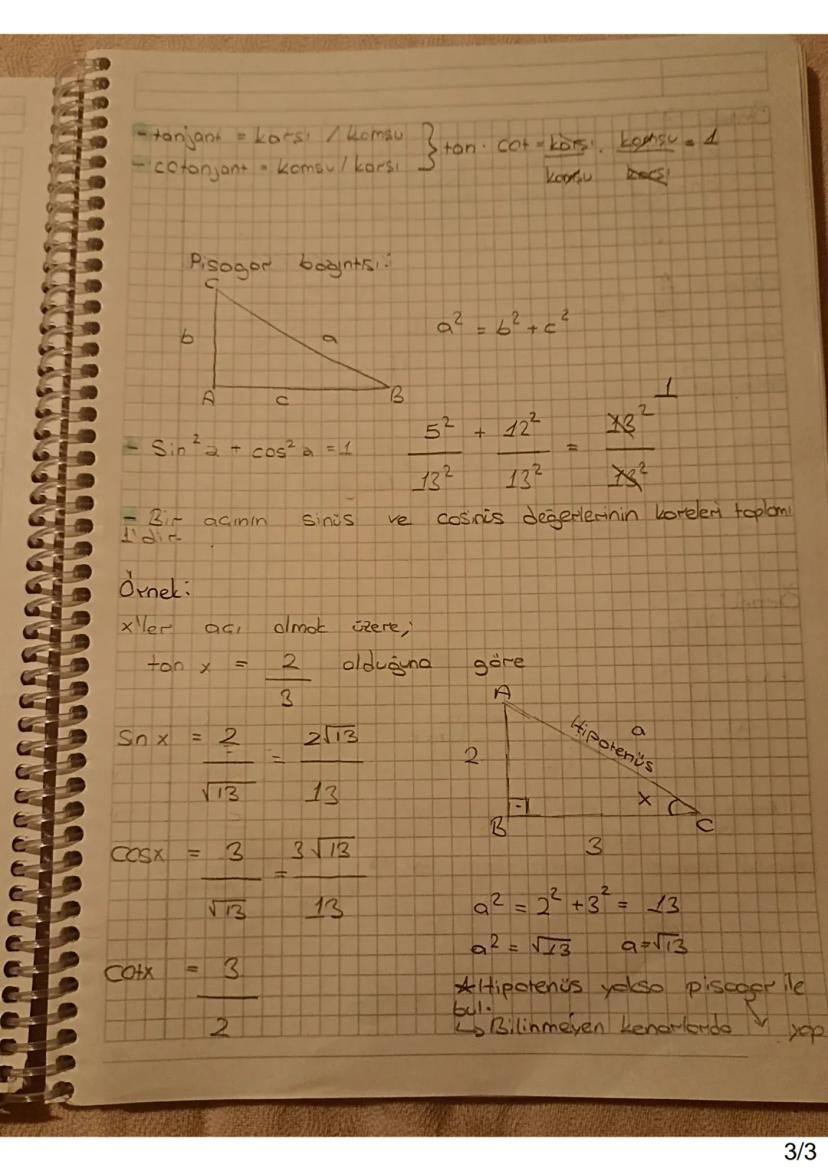 - tanjant = karsı / komsu } tan . cot = karsı / komsu . komsu / karsı = 1
- cotanjant = komsu / karsı
Pisagor bagıntsı:
C
b a
A c B
a² = b² + c²
- Sin²a + cos²a = 1 5²/13² + 12²/13² = 13²/13² 1
- Bir açının sinüs ve cosinüs değerlerinin kareleri toplamı
1'dir.
Örnek:
x'ler açı olmak üzere;
tan x = 2/3 olduğuna göre
Sn x = 2/√13 = 2√13/13
cosx = 3/√13 = 3√13/13
cotx = 3/2
A
2 Hipotenüs a
x
B 3 C
a² = 2² + 3² = 13
a² = √13 a=√13
★Hipotenüs yoksa pisagor ile
bul.
↳ Bilinmeyen kenarlarda ↘ yap
3/3